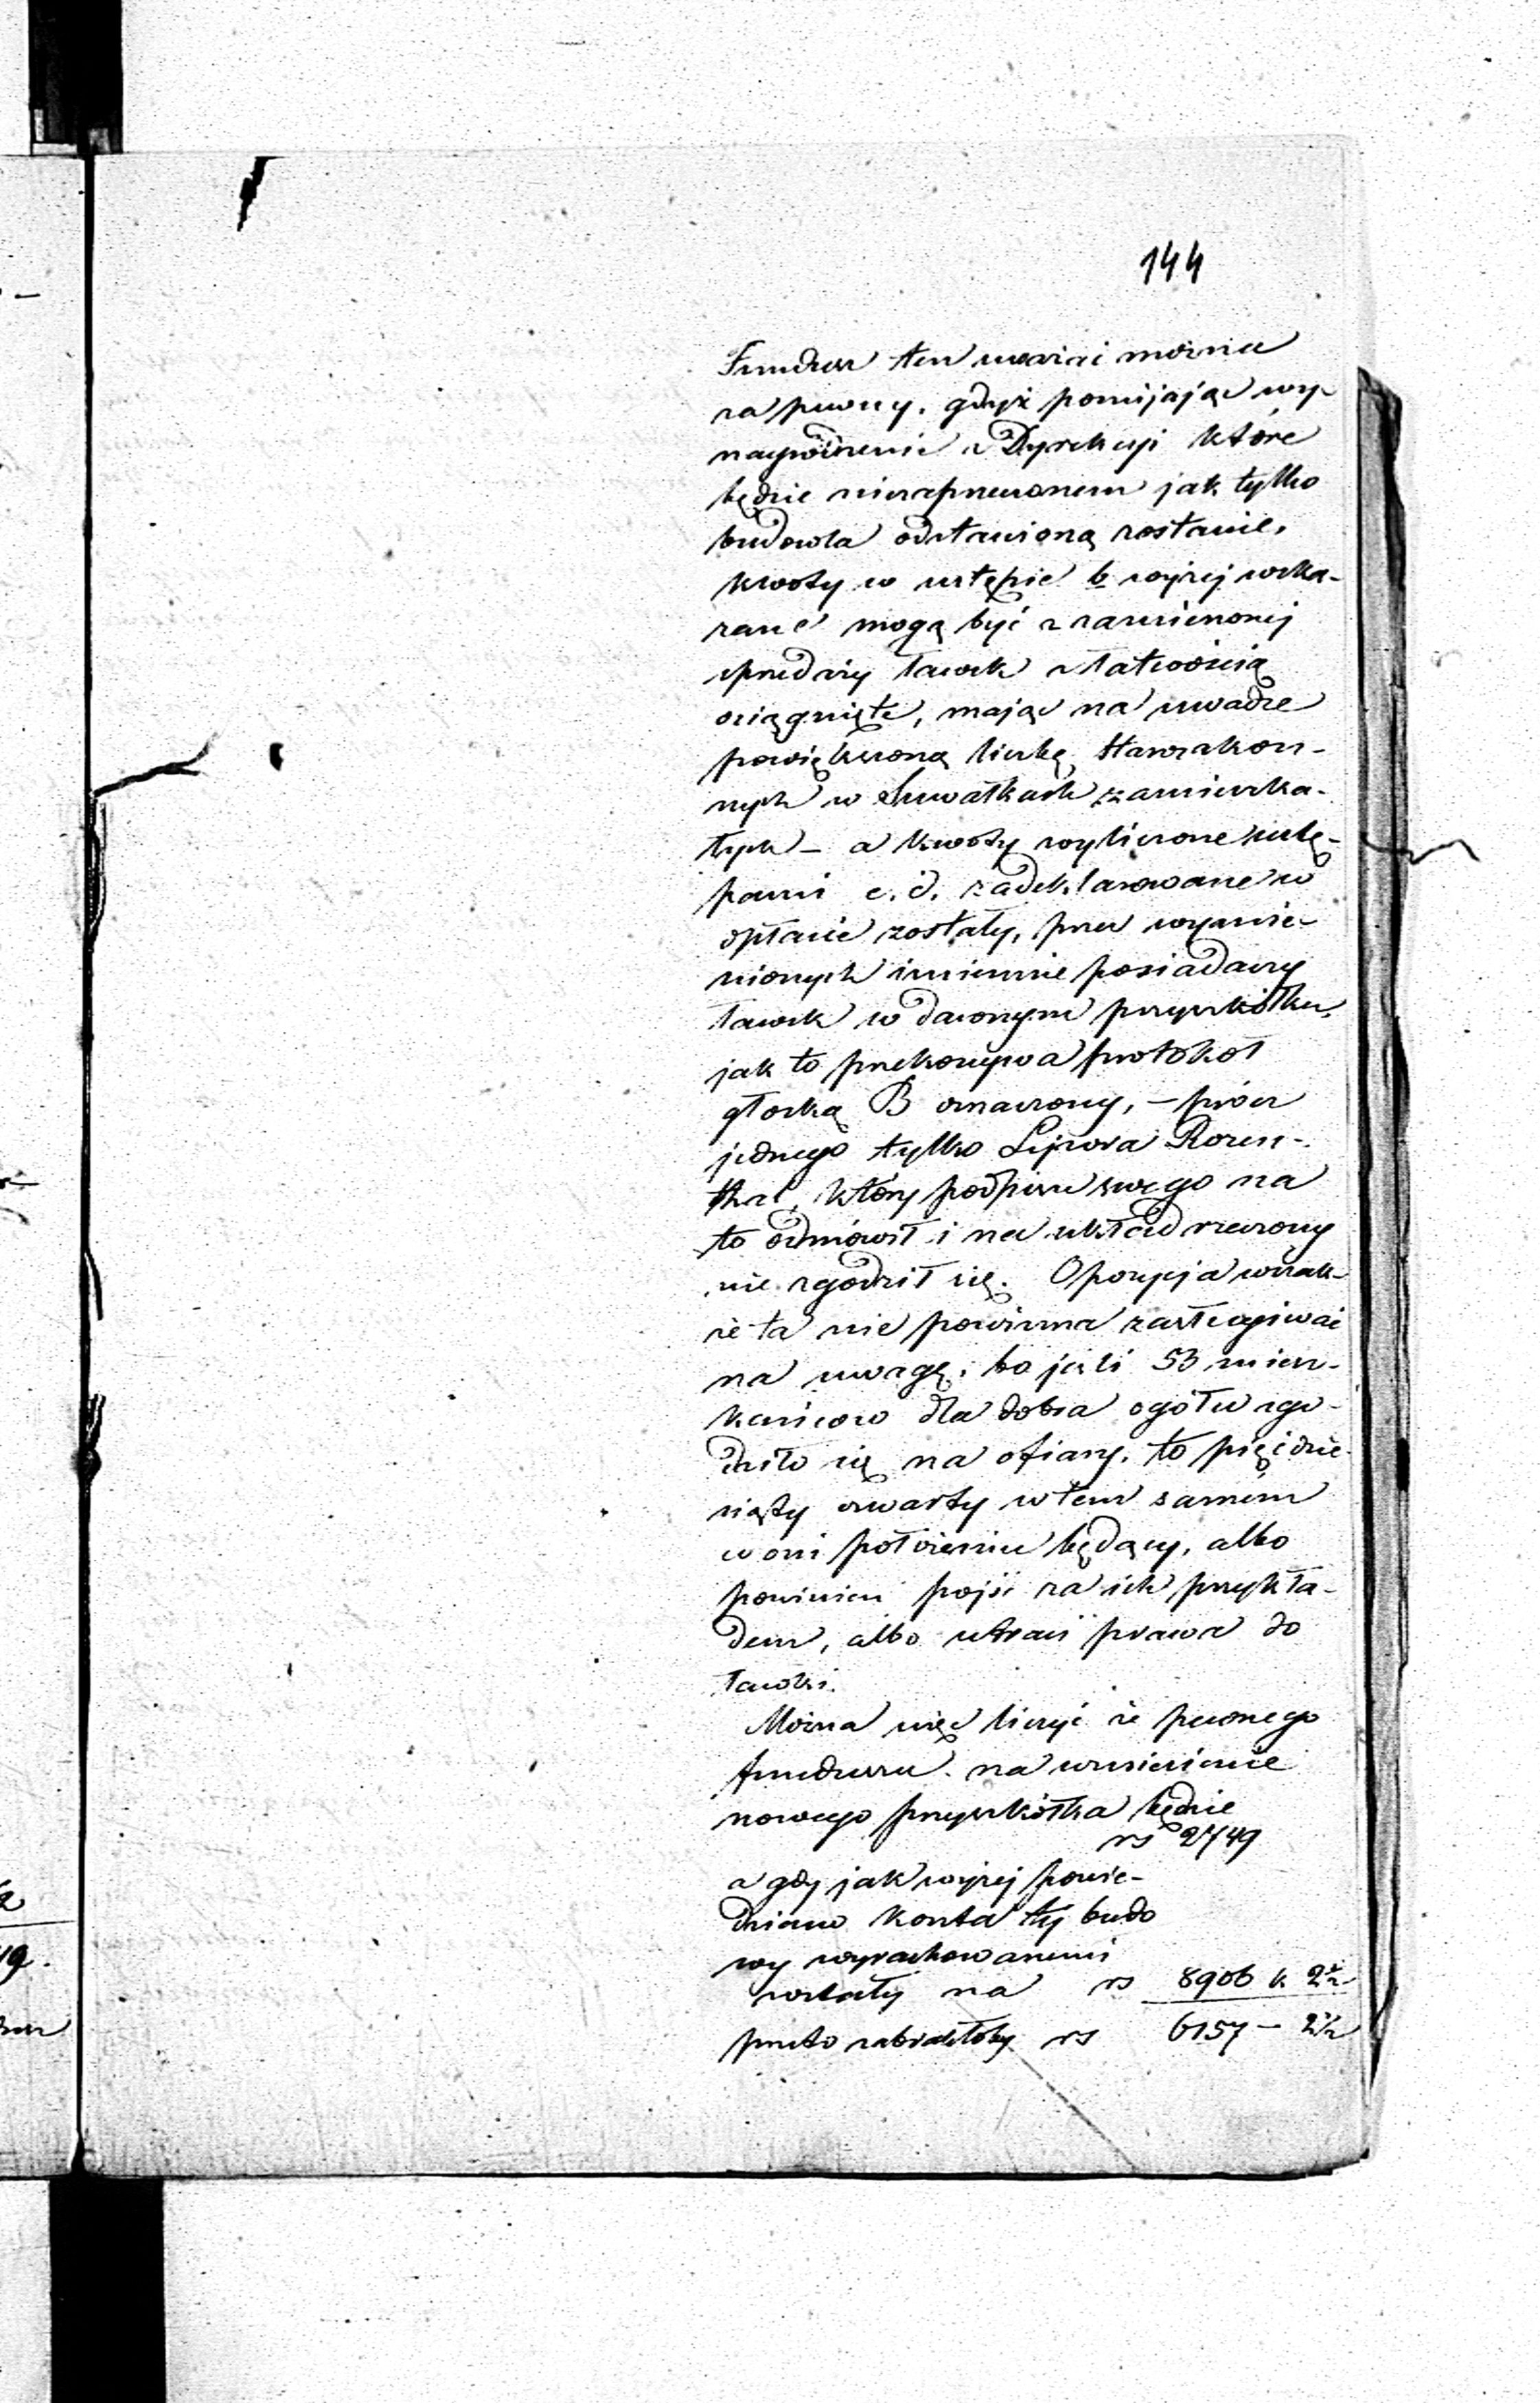 144
Fundusz ten uważać można
za pewny, gdyż pomijając wy-
nagrodzenie z Dyrekcyi które
będzie niezaprzeczonem jak tylko
budowla odstawioną zostanie,
kwoty w ustępie b wyżej wska-
zane mogą być z zamienionej
sprzedaży ławek z łatwością
osiągnięte, mając na uwadze
powiększoną liczbę Starozakon-
nych w Suwałkach zamieszka-
łych – a kwoty wyliczone ustę-
pami c. d. zadeklarowane w
opłacie zostały, przez wymie-
nionych imiennie posiadaczy
ławek w dawnym przyszkółku,
jak to przekonywa protokół
głoską B oznaczony, – prócz
jednego tylko Lejzora Rozen-
thal, który podpisu swego na
to odmówił i na układ rzeczony
nie zgodził się. Opozycja wszak-
że ta nie powinna zasługiwać
na uwagę, bo jeżli 53 miesz-
kańców dla dobra ogółu zgo-
dziło się na ofiary, to pięćdzie-
siąty czwarty w tem samém
co oni położeniu będący, albo
powinien pójść za ich przykła-
dem, albo utracić prawa do
ławki.
Można więc liczyć że pewnego
funduszu na wzniesienie
nowego przyszkółka będzie
rs 2749
a gdy jak wyżej powie-
dziano koszta tej budo
wy wyrachowanemi
zostały na rs 8906 k 2½
przeto zabrakłoby rs 6157 – 2½